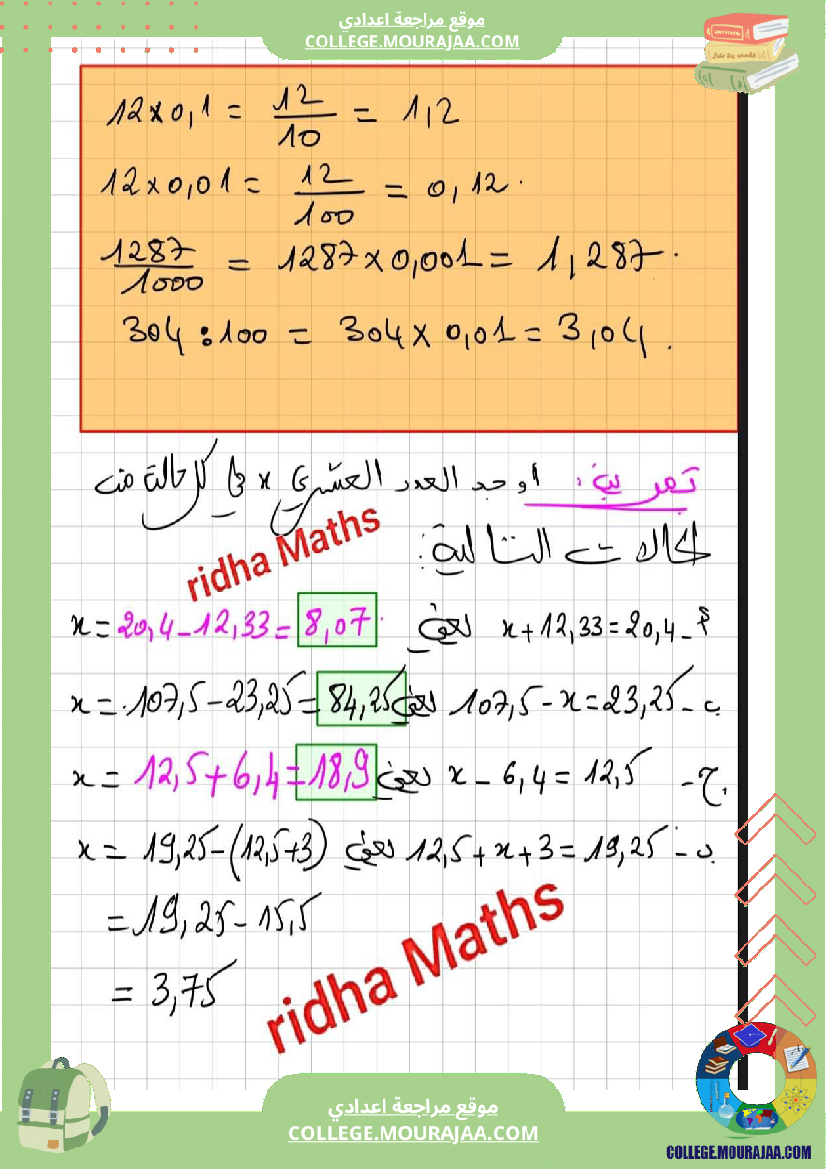 موقع مراجعة اعدادي
COLLEGE.MOURAJAA.COM
12×0,1 = 12/10 = 1,2
12×0,01 = 12/100 = 0,12.
1287/1000 = 1287×0,001 = 1,287.
304 : 100 = 304×0,01 = 3,04.
تمرين: أوجد العدد العشري x في كل حالة من
الحالات التالية:
ridha Maths
أ- x+12,33=20,4 يعني x=20,4-12,33=8,07.
ب- 107,5-x=23,25 يعني x=107,5-23,25=84,25
ج- x-6,4=12,5 يعني x=12,5+6,4=18,9
د- 12,5+x+3=19,25 يعني x=19,25-(12,5+3)
=19,25-15,5
=3,75
ridha Maths
موقع مراجعة اعدادي
COLLEGE.MOURAJAA.COM
COLLEGE.MOURAJAA.COM